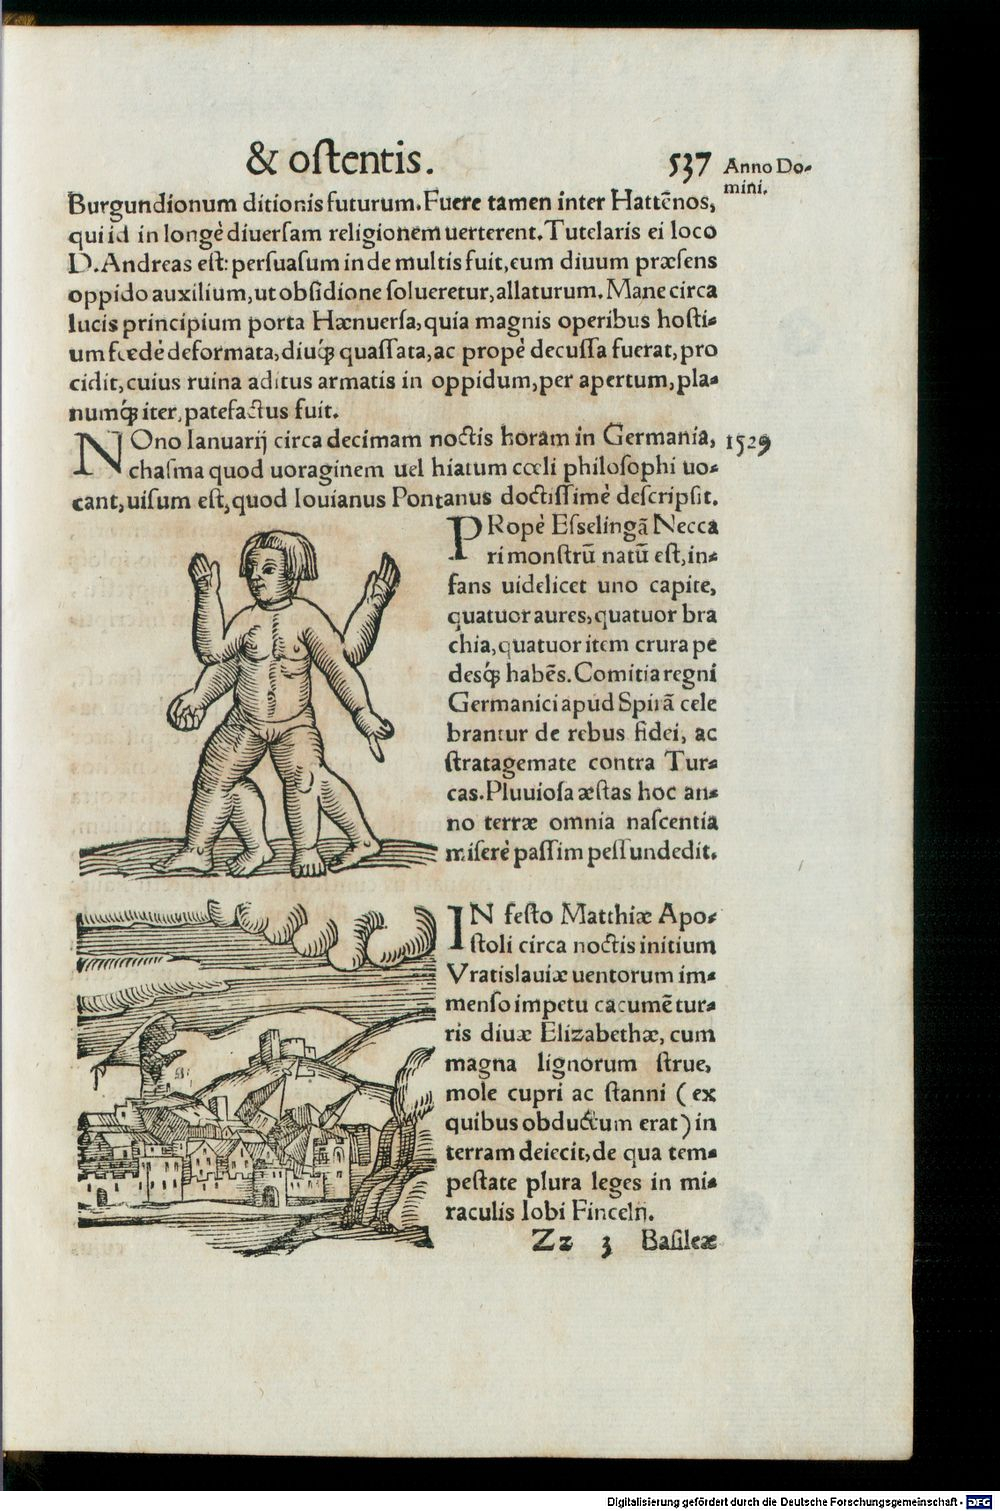 & oſtentis.
537
Anno Do-
mini.
Burgundionum ditionis futurum. Fuere tamen inter Hattẽnos,
qui id in longè diuerſam religionem uerterent. Tutelaris ei loco
D. Andreas eſt: perſuaſum inde multis fuit, eum diuum præſens
oppido auxilium, ut obſidione ſolueretur, allaturum. Mane circa
lucis principium porta Hænuerſa, quia magnis operibus hoſti-
um fœdè deformata, diuq́; quaſſata, ac propè decuſſa fuerat, pro
cidit, cuius ruina aditus armatis in oppidum, per apertum, pla-
numq́; iter, patefactus fuit.
NOno Ianuarij circa decimam noctis horam in Germania,
1529
chaſma quod uoraginem uel hiatum cœli philoſophi uo-
cant, uiſum eſt, quod Iouianus Pontanus doctiſſimè deſcripſit.
PRopè Eſſelingã Necca
ri monſtrũ natũ eſt, in-
fans uidelicet uno capite,
quatuor aures, quatuor bra
chia, quatuor item crura pe
desq́; habẽs. Comitia regni
Germanici apud Spirã cele
brantur de rebus fidei, ac
ſtratagemate contra Tur-
cas. Pluuioſa æſtas hoc an-
no terræ omnia naſcentia
miſerè paſſim peſſundedit.
IN feſto Matthiæ Apo-
ſtoli circa noctis initium
Vratislauiæ uentorum im-
menſo impetu cacumẽ tur-
ris diuæ Elizabethæ, cum
magna lignorum ſtrue,
mole cupri ac ſtanni (ex
quibus obductum erat) in
terram deiecit, de qua tem-
peſtate plura leges in mi-
raculis Iobi Fincelij.
Zz 3 Baſileæ
Digitalisierung gefördert durch die Deutsche Forschungsgemeinschaft - DFG